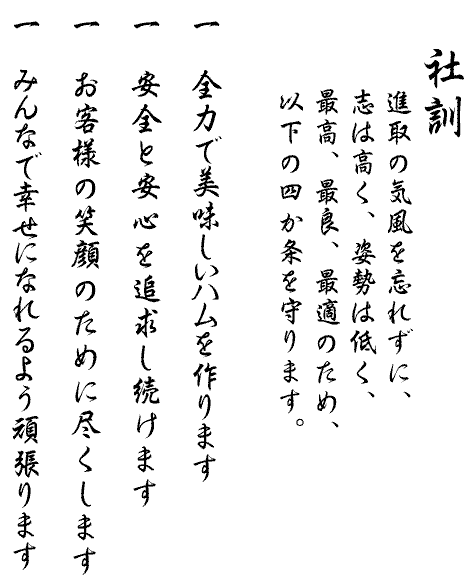 社訓
進取の気風を忘れずに、
志は高く、姿勢は低く、
最高、最良、最適のため、
以下の四か条を守ります。
一 全力で美味しいハムを作ります
一 安全と安心を追求し続けます
一 お客様の笑顔のために尽くします
一 みんなで幸せになれるよう頑張ります